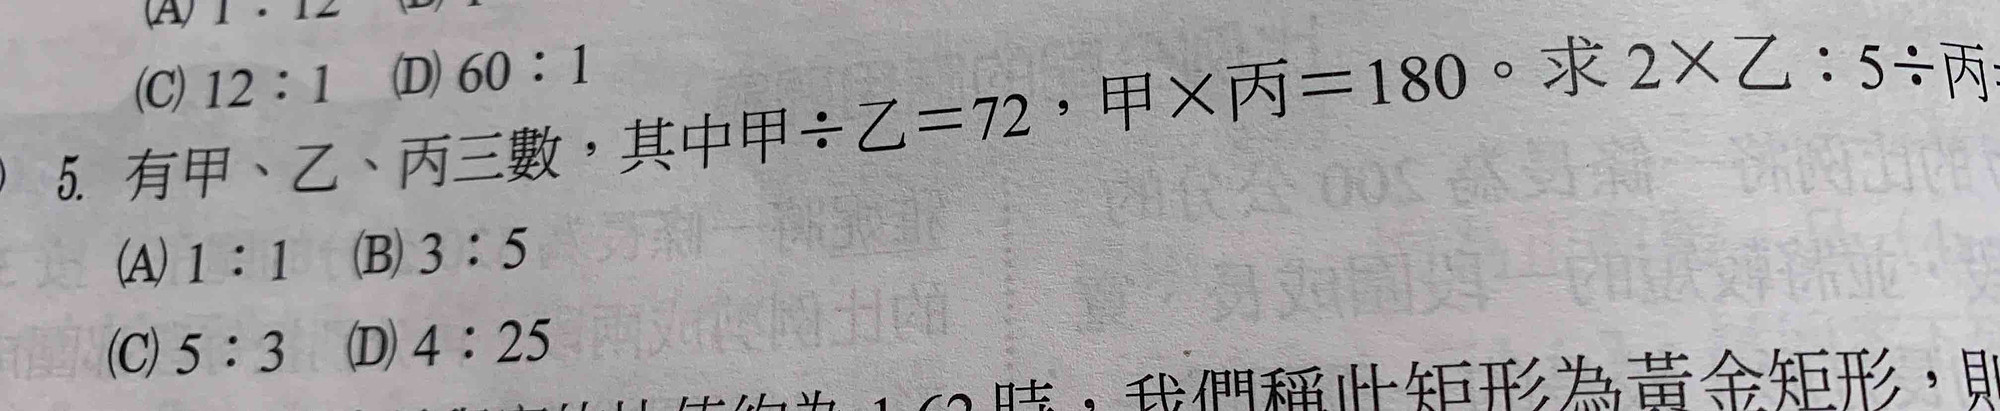 (C) 12：1　(D) 60：1
5. 有甲、乙、丙三數，其中甲÷乙＝72，甲×丙＝180。求 2×乙：5÷丙
(A) 1：1　(B) 3：5
(C) 5：3　(D) 4：25
時，我們稱此矩形為黃金矩形，則